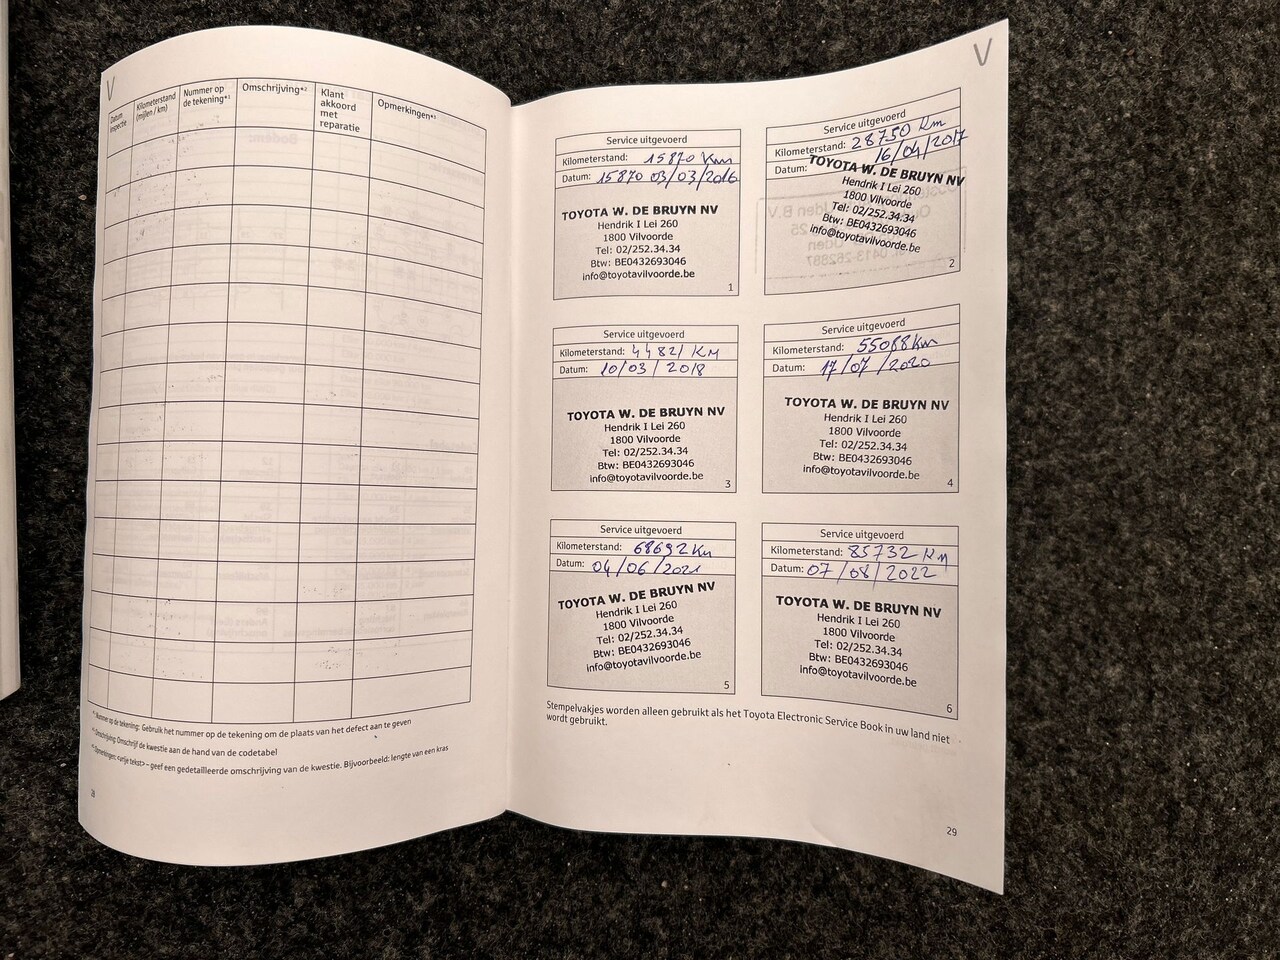 V
Datum inspectie
Kilometerstand (mijlen / km)
Nummer op de tekening*¹
Omschrijving*²
Klant akkoord met reparatie
Opmerkingen*³
*¹ Nummer op de tekening: Gebruik het nummer op de tekening om de plaats van het defect aan te geven
*² Omschrijving: Omschrijf de kwestie aan de hand van de codetabel
*³ Opmerkingen: <vrije tekst> – geef een gedetailleerde omschrijving van de kwestie. Bijvoorbeeld: lengte van een kras
28
V
Service uitgevoerd
Kilometerstand: 15870 Km
Datum: 15870 03/03/2016
TOYOTA W. DE BRUYN NV
Hendrik I Lei 260
1800 Vilvoorde
Tel: 02/252.34.34
Btw: BE0432693046
info@toyotavilvoorde.be
1
Service uitgevoerd
Kilometerstand: 28750 Km
Datum: 16/04/2017
TOYOTA W. DE BRUYN NV
Hendrik I Lei 260
1800 Vilvoorde
Tel: 02/252.34.34
Btw: BE0432693046
info@toyotavilvoorde.be
2
Service uitgevoerd
Kilometerstand: 44821 KM
Datum: 10/03/2018
TOYOTA W. DE BRUYN NV
Hendrik I Lei 260
1800 Vilvoorde
Tel: 02/252.34.34
Btw: BE0432693046
info@toyotavilvoorde.be
3
Service uitgevoerd
Kilometerstand: 55088 Km
Datum: 17/07/2020
TOYOTA W. DE BRUYN NV
Hendrik I Lei 260
1800 Vilvoorde
Tel: 02/252.34.34
Btw: BE0432693046
info@toyotavilvoorde.be
4
Service uitgevoerd
Kilometerstand: 68692 Km
Datum: 04/06/2021
TOYOTA W. DE BRUYN NV
Hendrik I Lei 260
1800 Vilvoorde
Tel: 02/252.34.34
Btw: BE0432693046
info@toyotavilvoorde.be
5
Service uitgevoerd
Kilometerstand: 85732 KM
Datum: 07/08/2022
TOYOTA W. DE BRUYN NV
Hendrik I Lei 260
1800 Vilvoorde
Tel: 02/252.34.34
Btw: BE0432693046
info@toyotavilvoorde.be
6
Stempelvakjes worden alleen gebruikt als het Toyota Electronic Service Book in uw land niet
wordt gebruikt.
29